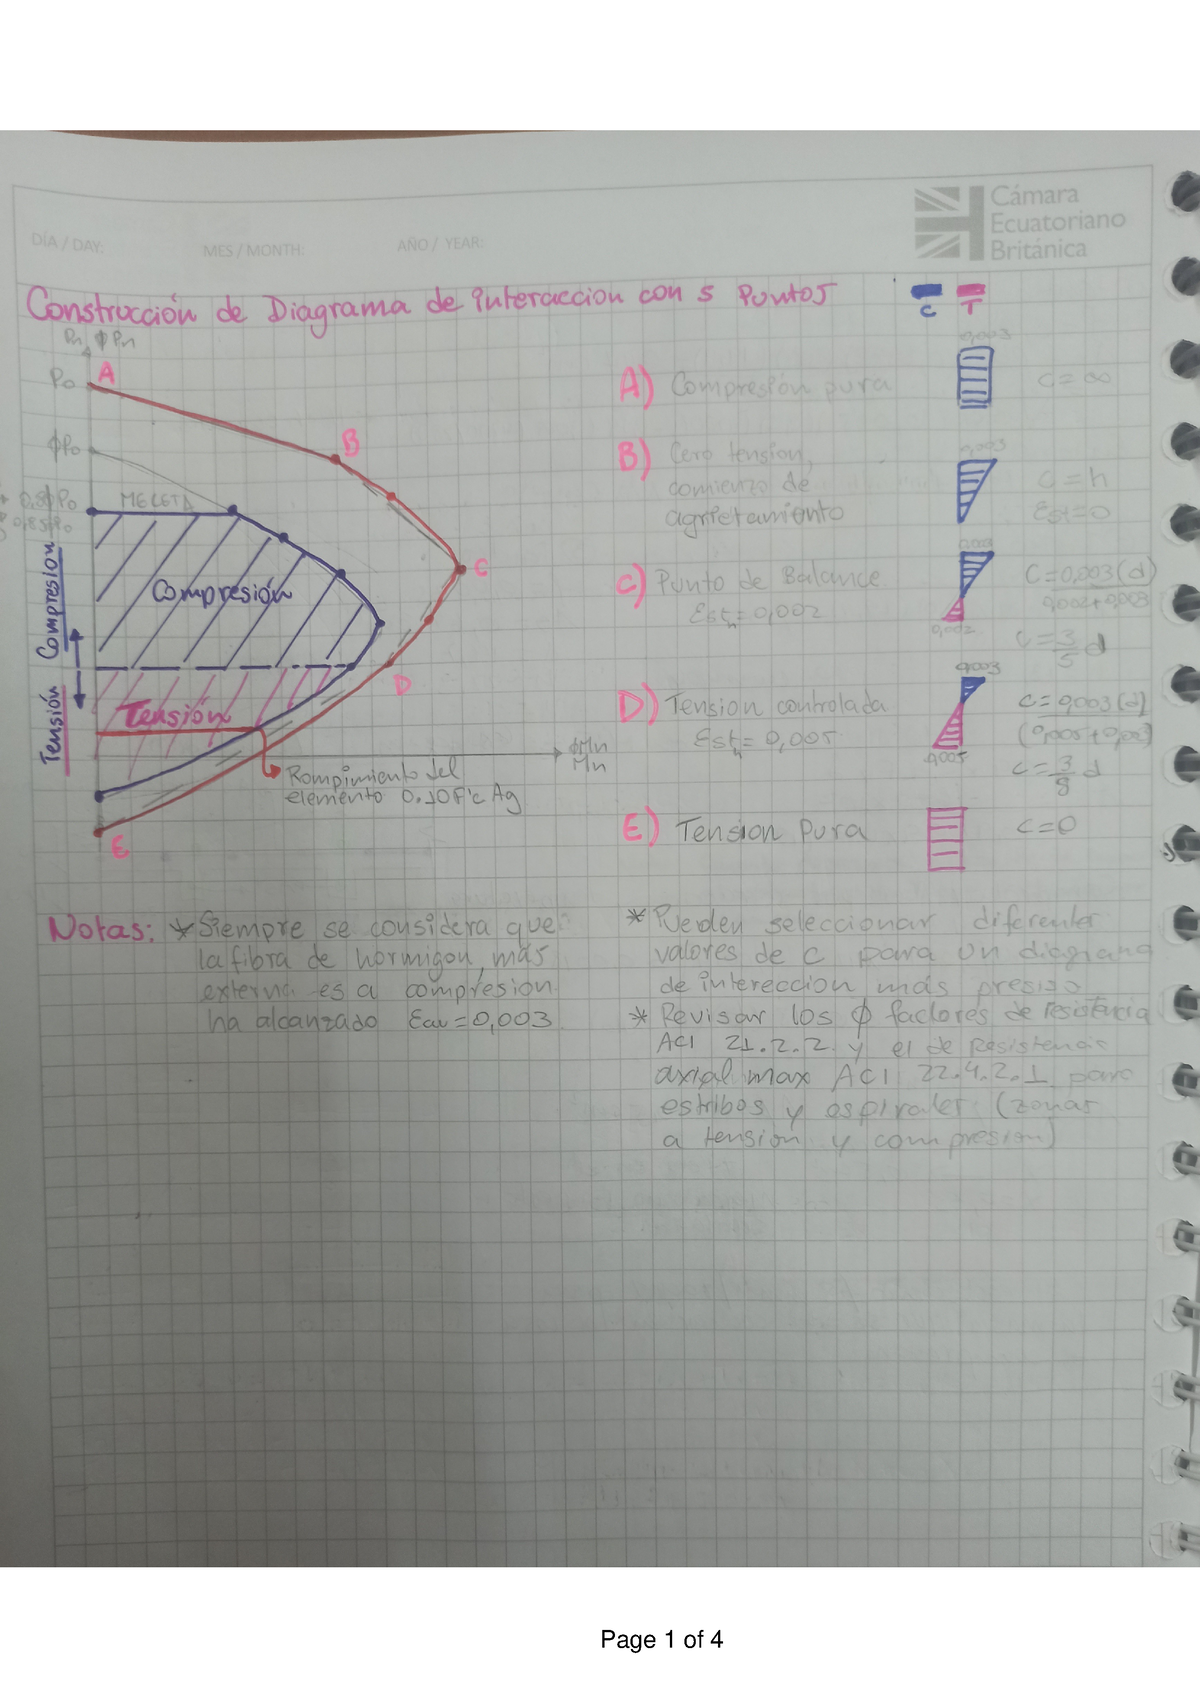 Cámara
Ecuatoriano
Británica
DÍA / DAY:
MES / MONTH:
AÑO / YEAR:
Construcción de Diagrama de interaccion con 5 Puntos
C T
Pn, ϕPn
Po A
B
ϕPo
0.8ϕPo MESETA
0,85ϕPo
C
Compresión
Compresion
D
Tensión
Tensión
ϕMn
Mn
Rompimiento del
elemento 0.10F'c Ag
E
A) Compresión pura 0,003 C=∞
B) Cero tension, 0,003
comienzo de C=h
agrietamiento Est=0
C) Punto de Balance 0,003 C=0,003(d)
Est=0,002 0,002+0,003
0,002
C=3/5 d
D) Tension controlada 0,003 C=0,003(d)
Est=0,005 (0,005+0,003)
0,005
C=3/8 d
E) Tension Pura C=0
Notas: * Siempre se considera que
la fibra de hormigon, más
externa es a compresion
ha alcanzado Ecu=0,003
* Pueden seleccionar diferentes
valores de C para un diagrama
de intereccion más presiso
* Revisar los ϕ factores de resistencia
ACI 21.2.2. y el de Resistencia
axial max ACI 22.4.2.1 para
estribos y espirales (zonas
a tensión y compresion)
Page 1 of 4